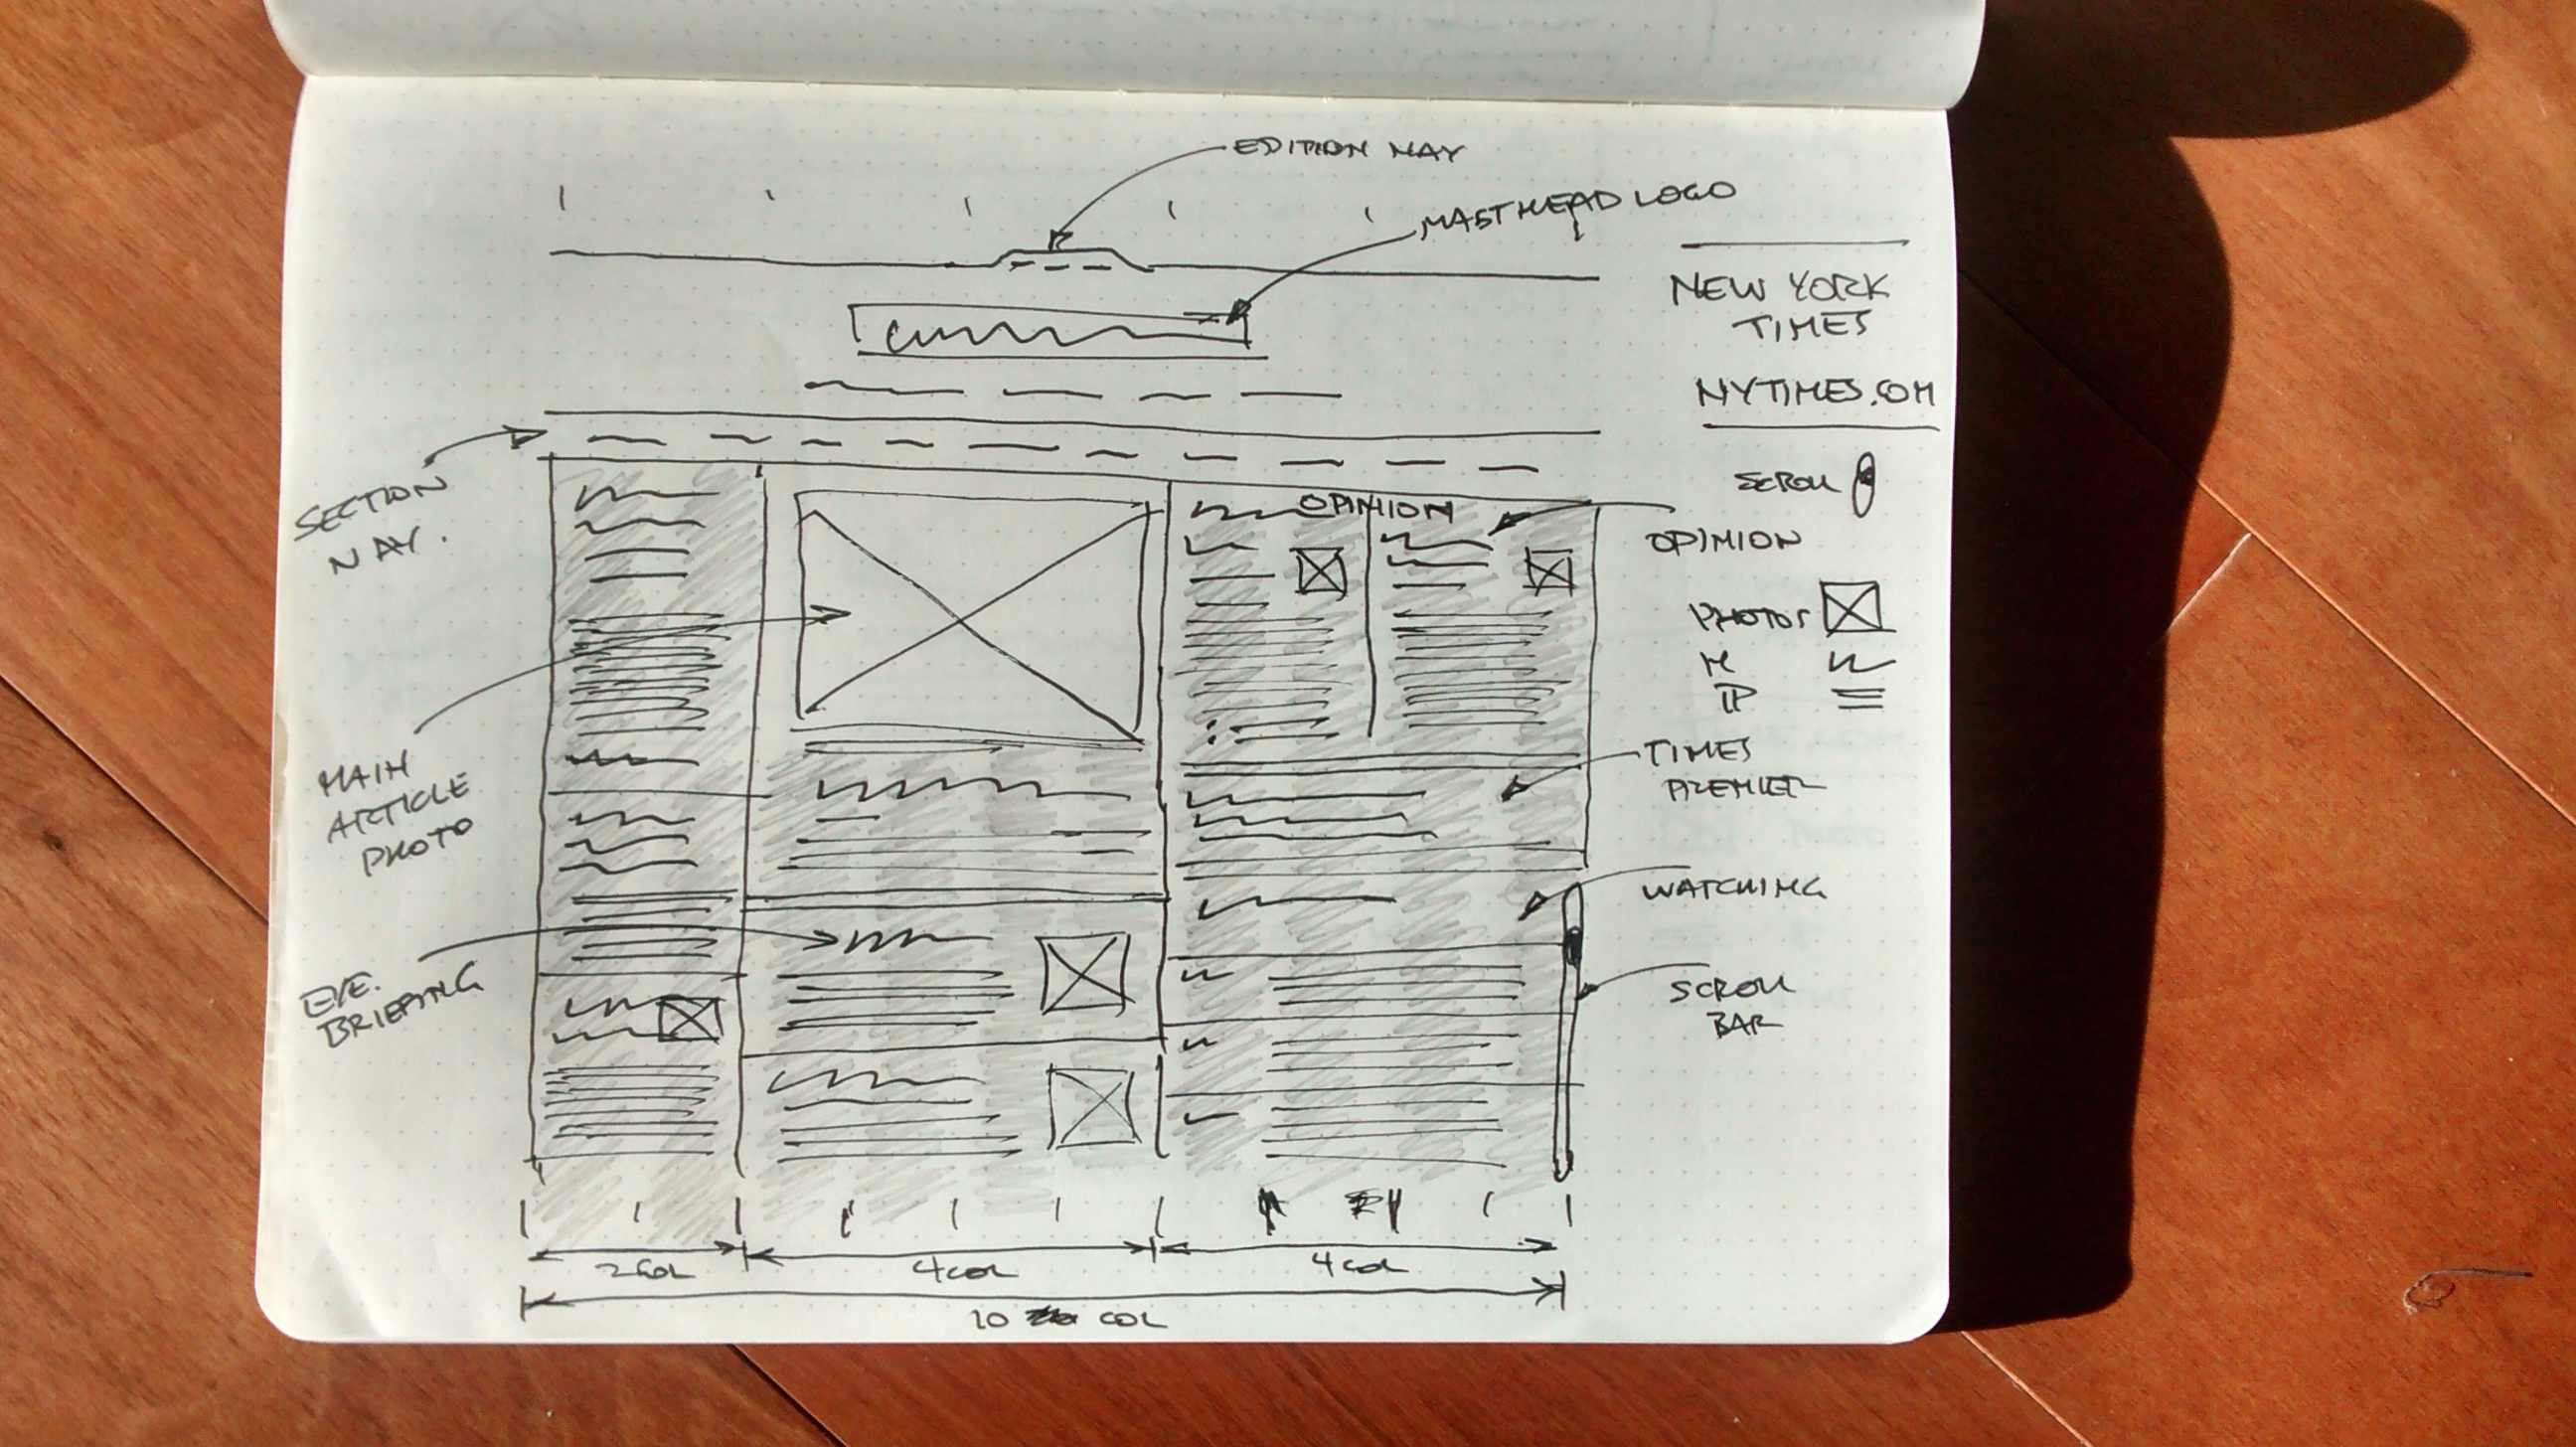 EDITION NAV
MASTHEAD LOGO
NEW YORK
TIMES
NYTIMES.COM
SECTION
NAV.
SCROLL
OPINION
OPINION
PHOTOS
H
P
MAIN
ARTICLE
PHOTO
TIMES
PREMIER
WATCHING
EVE.
BRIEFING
SCROLL
BAR
2 COL
4 COL
4 COL
10 COL